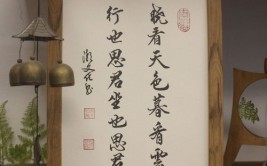 曉看天色暮看雲
行也思君坐也思君